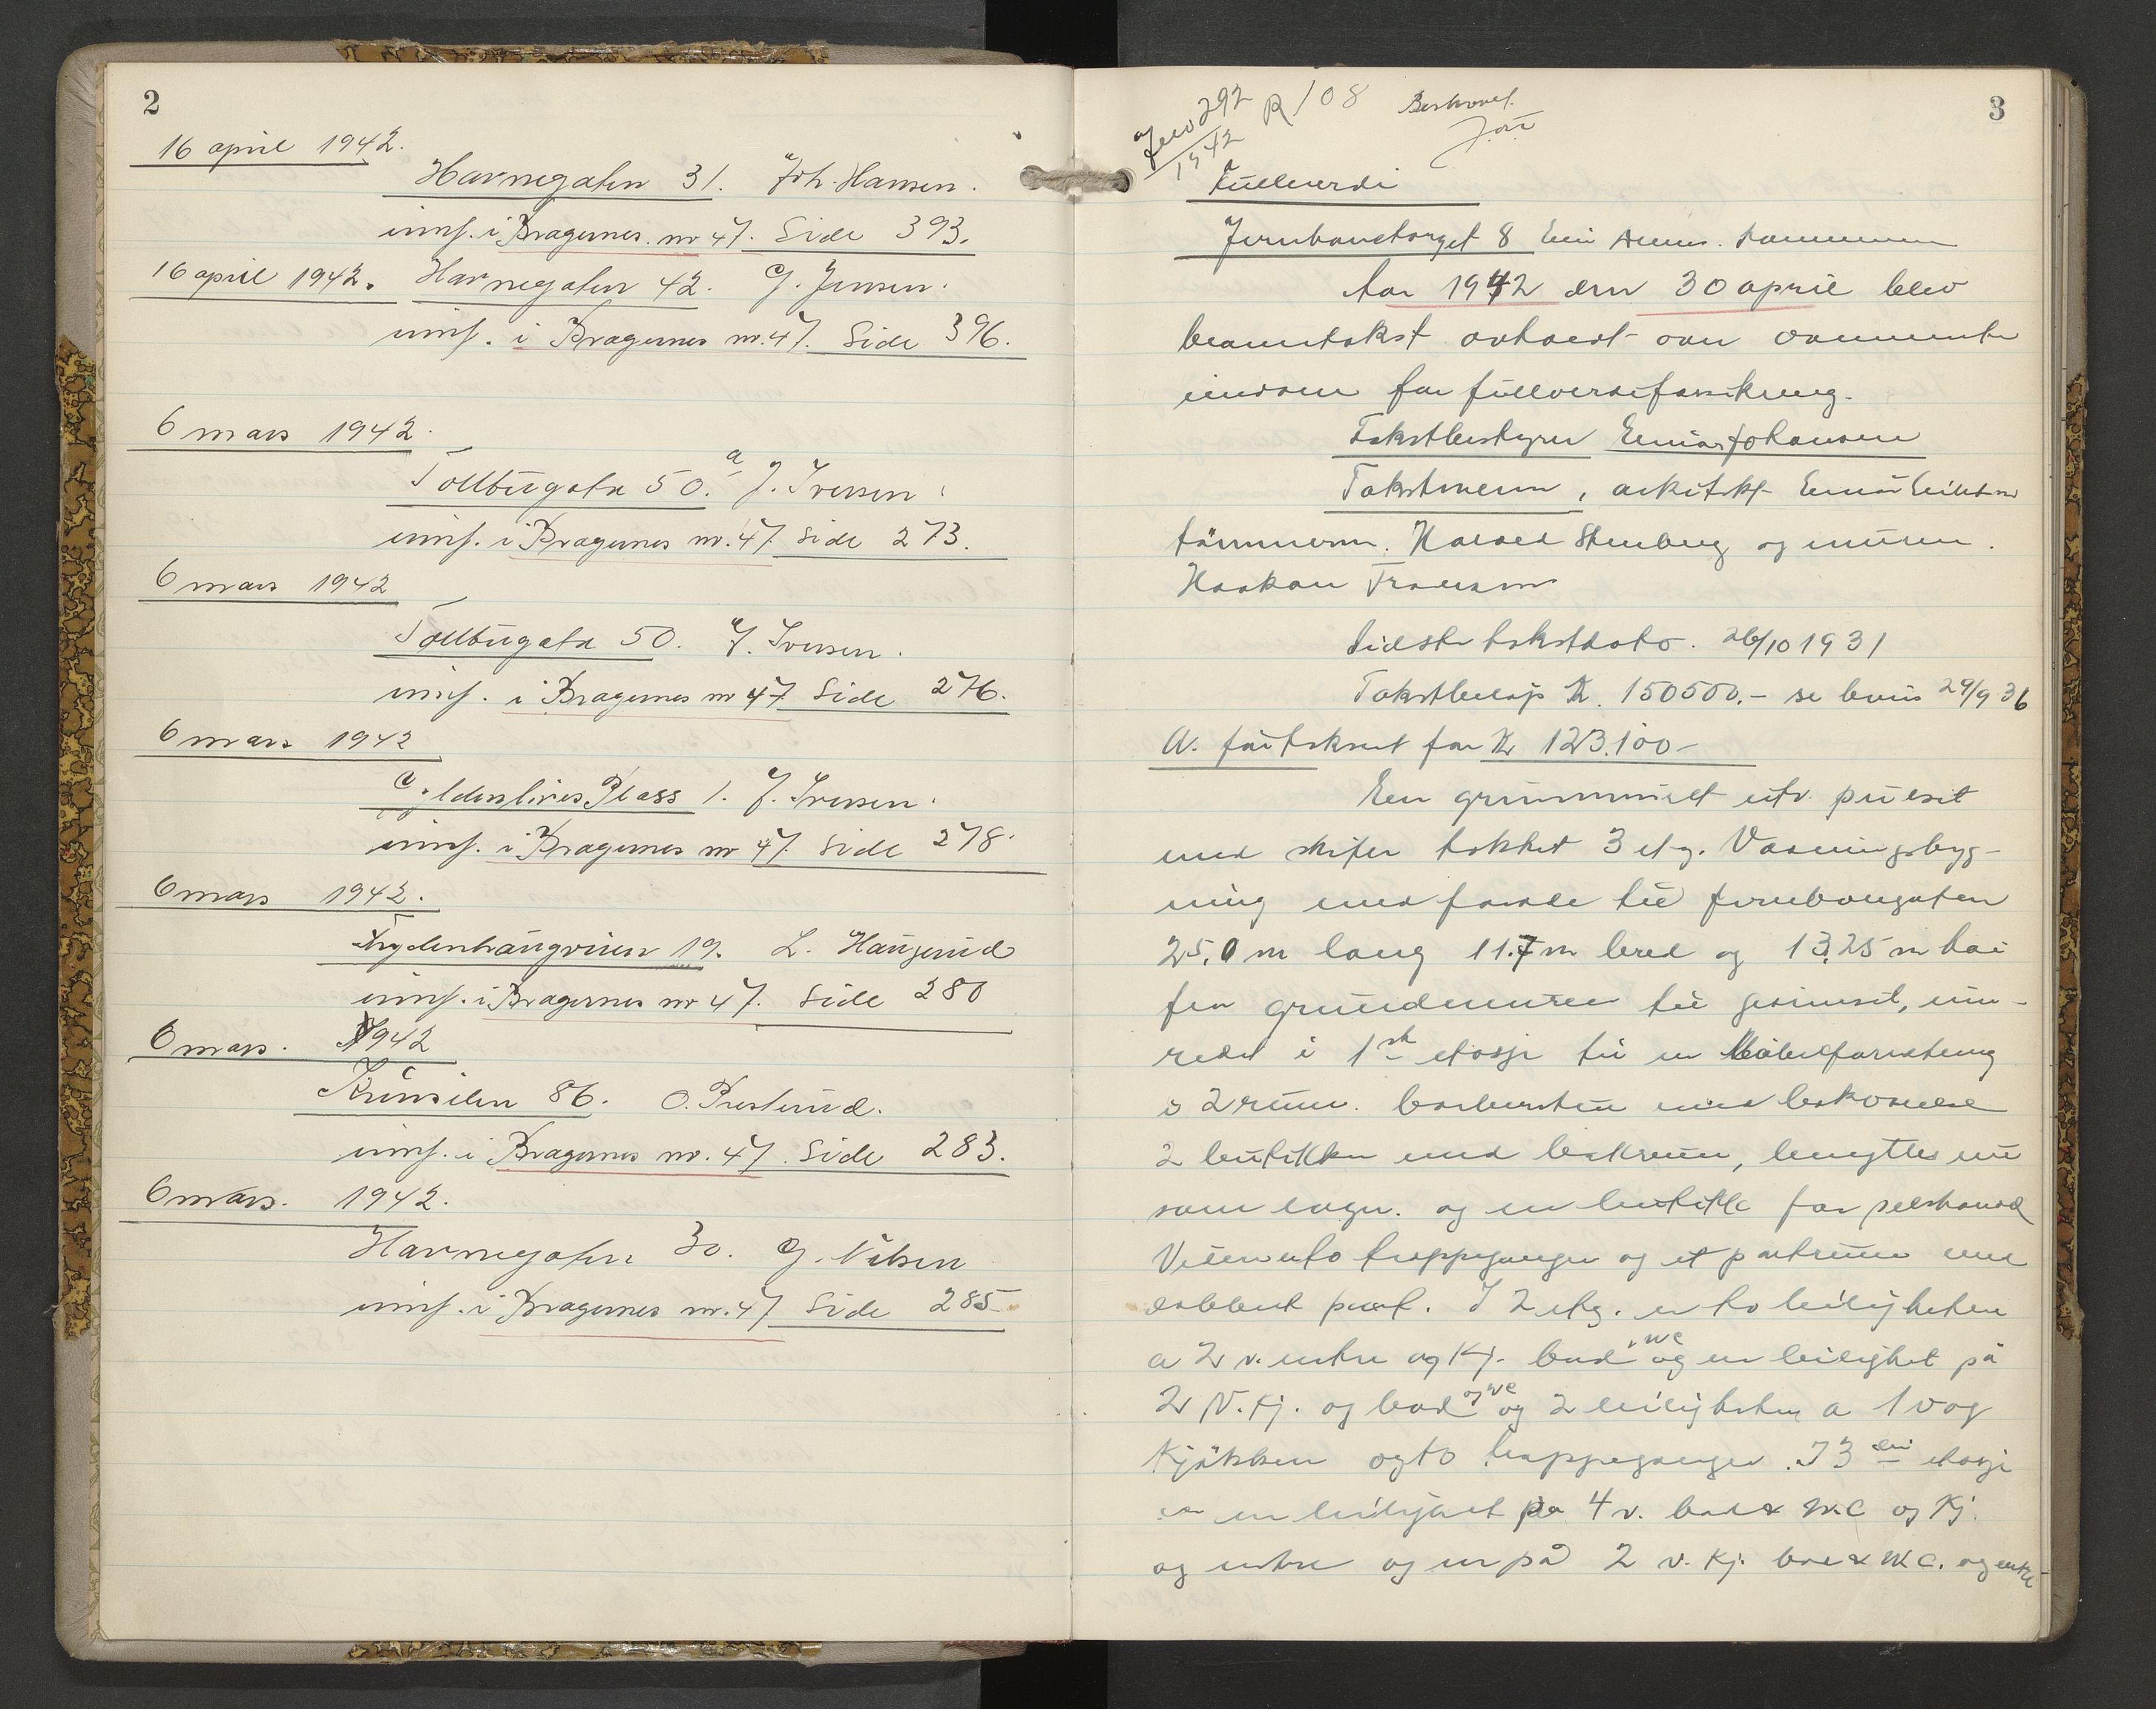 2
16 april 1942.
Havnegaten 31. Joh. Hansen.
innf. i Bragernes. nr 47. Side 393.
16 april 1942. Havnegaten 42. G. Jensen.
innf. i Bragernes nr. 47. Side 396.
6 mars 1942.
Tollbugata 50.a J. Iversen.
innf. i Bragernes nr. 47. Side 273.
6 mars 1942
Tollbugata 50. J. Iversen.
innf. i Bragernes nr 47 Side 276.
6 mars 1942
Gyldenløves Plass 1. J. Iversen.
innf. i Bragernes nr 47. Side 278
6 mars 1942.
19. L. Haugerud
innf. i Bragernes nr 47. Side 280
6 mars. 1942
86. O.
innf. i Bragernes nr. 47. Side 283.
6 mars. 1942.
Havnegaten 30. G. Nilsen
innf. i Bragernes nr. 47 Side 285
3
292 R 108 Beskrevet
1942
Fullverdi
Jernbanetorget 8
Aar 1942 den 30 april blev
branntakst avholdt over ovennevnte
eiendom for fullverdiforsikring.
Takstbestyrer Einar Johansen
Takstmenn, arkitekt Einar
tømmerm. Harald Stenberg og murm.
Haakon Fransen
Sidste takstdato. 26/10 1931
Takstbeløp Kr. 150500.- se brevis 29/9 36
A. før taksert for Kr 123.100-
En grunnmuret utv. pusset
med skifer tekket 3 etg. Vaaningsbyg-
ning med fasade til Jernbanegaten
25,0 m lang 11.7 m bred og 13,25 m høi
fra grundmuren til gesimset, inn-
redet i 1ste etasje til en Møbelforretning
i 2 rum. med bakværelse
2 butikker med bakrum, benyttes nu
som lager. og en butikk for pelshandel
Videre to trappeganger og et portrum med
dobbelt port. I 2 etg. er to leiligheter
a 2 v. entre og Kj. bad, WC og en leilighet på
2 V. Kj. og bad og WC og 2 leiligheter a 1 v og
Kjøkken og to trappeganger. I 3die etasje
er en leilighet på 4 v. bad & W.C og Kj.
og entre og en på 2 v. Kj. bad & WC. og entre